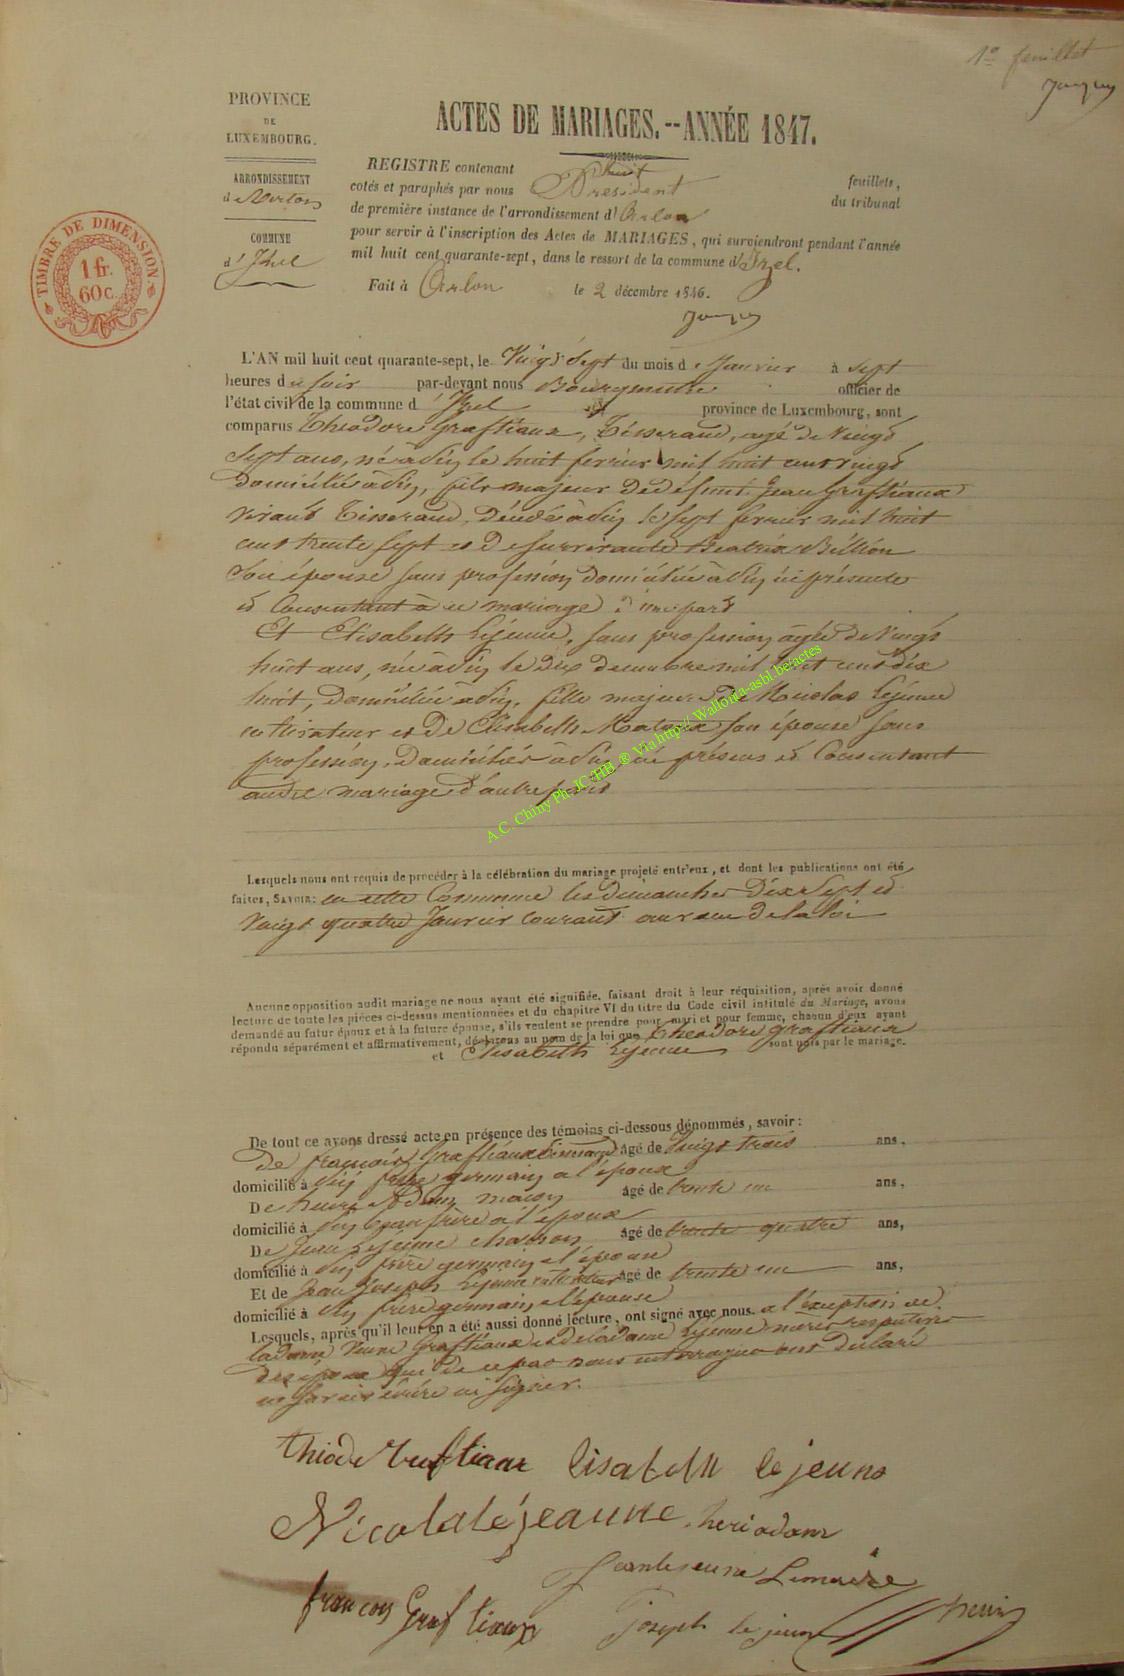 1º feuillet
PROVINCE
DE
LUXEMBOURG.
ARRONDISSEMENT
de Virton
COMMUNE
d'Izel
TIMBRE DE DIMENSION
1 fr.
60 c.
ACTES DE MARIAGES.--ANNÉE 1847.
REGISTRE contenant huit feuillets,
cotés et paraphés par nous Président du tribunal
de première instance de l'arrondissement d'Arlon
pour servir à l'inscription des Actes de MARIAGES, qui surviendront pendant l'année
mil huit cent quarante-sept, dans le ressort de la commune d'Izel.
Fait à Arlon le 2 décembre 1846.
L'AN mil huit cent quarante-sept, le Vingt Sept du mois de Janvier à sept
heures du soir par-devant nous Bourgmestre officier de
l'état civil de la commune d'Izel province de Luxembourg, sont
comparus Théodore Graftiaux, Tisserand, agé de Vingt
Sept ans, né à le huit fevrier mil huit cent vingt
domicilié à fils majeur de défunt Jean Graftiaux
vivant Tisserand, Décédé à le sept fevrier mil huit
cent trente sept et de survivante Beatrix Billion
son épouse sans profession domiciliée à ici présente
et Consentant à ce mariage d'une part
Et Elisabeth Lejeune, sans profession agée de Vingt
huit ans, née à le dix decembre mil huit cent dix
huit, Domiciliée à fille majeure de Nicolas Lejeune
cultivateur et de Elisabeth son épouse sans
profession, Domiciliés à ici présens et Consentant
audit mariage d'autre part
Lesquels nous ont requis de procéder à la célébration du mariage projeté entr'eux, et dont les publications ont été
faites, SAVOIR: en cette Commune les dimanches Dix Sept et
Vingt quatre Janvier courant au vœu de la loi
Aucune opposition audit mariage ne nous ayant été signifiée, faisant droit à leur réquisition, après avoir donné
lecture de toute les pièces ci-dessus mentionnées et du chapitre VI du titre du Code civil intitulé du Mariage, avons
demandé au futur époux et à la future épouse, s'ils veulent se prendre pour mari et pour femme, chacun d'eux ayant
répondu séparément et affirmativement, déclarons au nom de la loi que Théodore Graftiaux
et Elisabeth Lejeune sont unis par le mariage.
De tout ce avons dressé acte en présence des témoins ci-dessous dénommés, savoir:
De françois Graftiaux Tisserand âgé de Vingt trois ans,
domicilié à frère germain a l'époux
De henri Adam maçon âgé de trente un ans,
domicilié à beau frère a l'époux
De Jean Lejeune âgé de trente quatre ans,
domicilié à frère germain a l'épouse
Et de Jean Joseph Lejeune cultivateur âgé de trente un ans,
domicilié à frère germain a l'épouse
Lesquels, après qu'il leur en a été aussi donné lecture, ont signé avec nous. a l'exception de
la dame Veuve Graftiaux et de la dame Lejeune mères respectives
des époux qui de ce par nous interrogées ont déclaré
ne savoir écrire ni signer.
lisabeth lejeune
Nicola léjeaune
heri adam
Jean lejeune
françois Graftiaux
joseph lejeune
A.C. Chiny Ph. JC-HB ® Via http:// Wallonia-asbl.be/actes